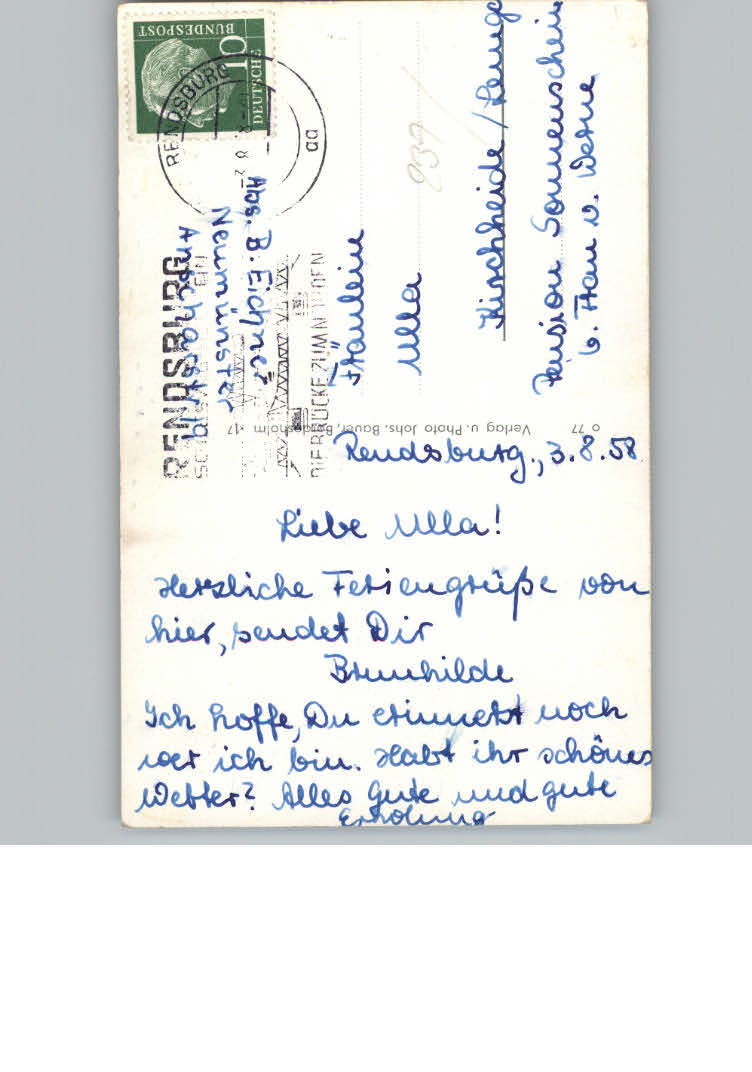 Rendsburg, 3.8.58
Liebe Ulla!
Herzliche Feriengrüße von
hier, sendet Dir
Brunhilde
Ich hoffe, Du erinnerst noch
wer ich bin. Habt ihr schönes
Wetter? Alles Gute und gute
Erholung
Fräulein
Ulla
Kirschheide / Lemgo
Pension Sonnenschein
b. Frau v. Werne
Abs. B. Eichner
Neumünster
239
DEUTSCHE
BUNDESPOST
10
RENDSBURG
aa
RENDSBURG
EIN
DIE BRÜCKE ZUM NORDEN
Verlag u. Photo Johs. Bauer, Bordesholm
o 77